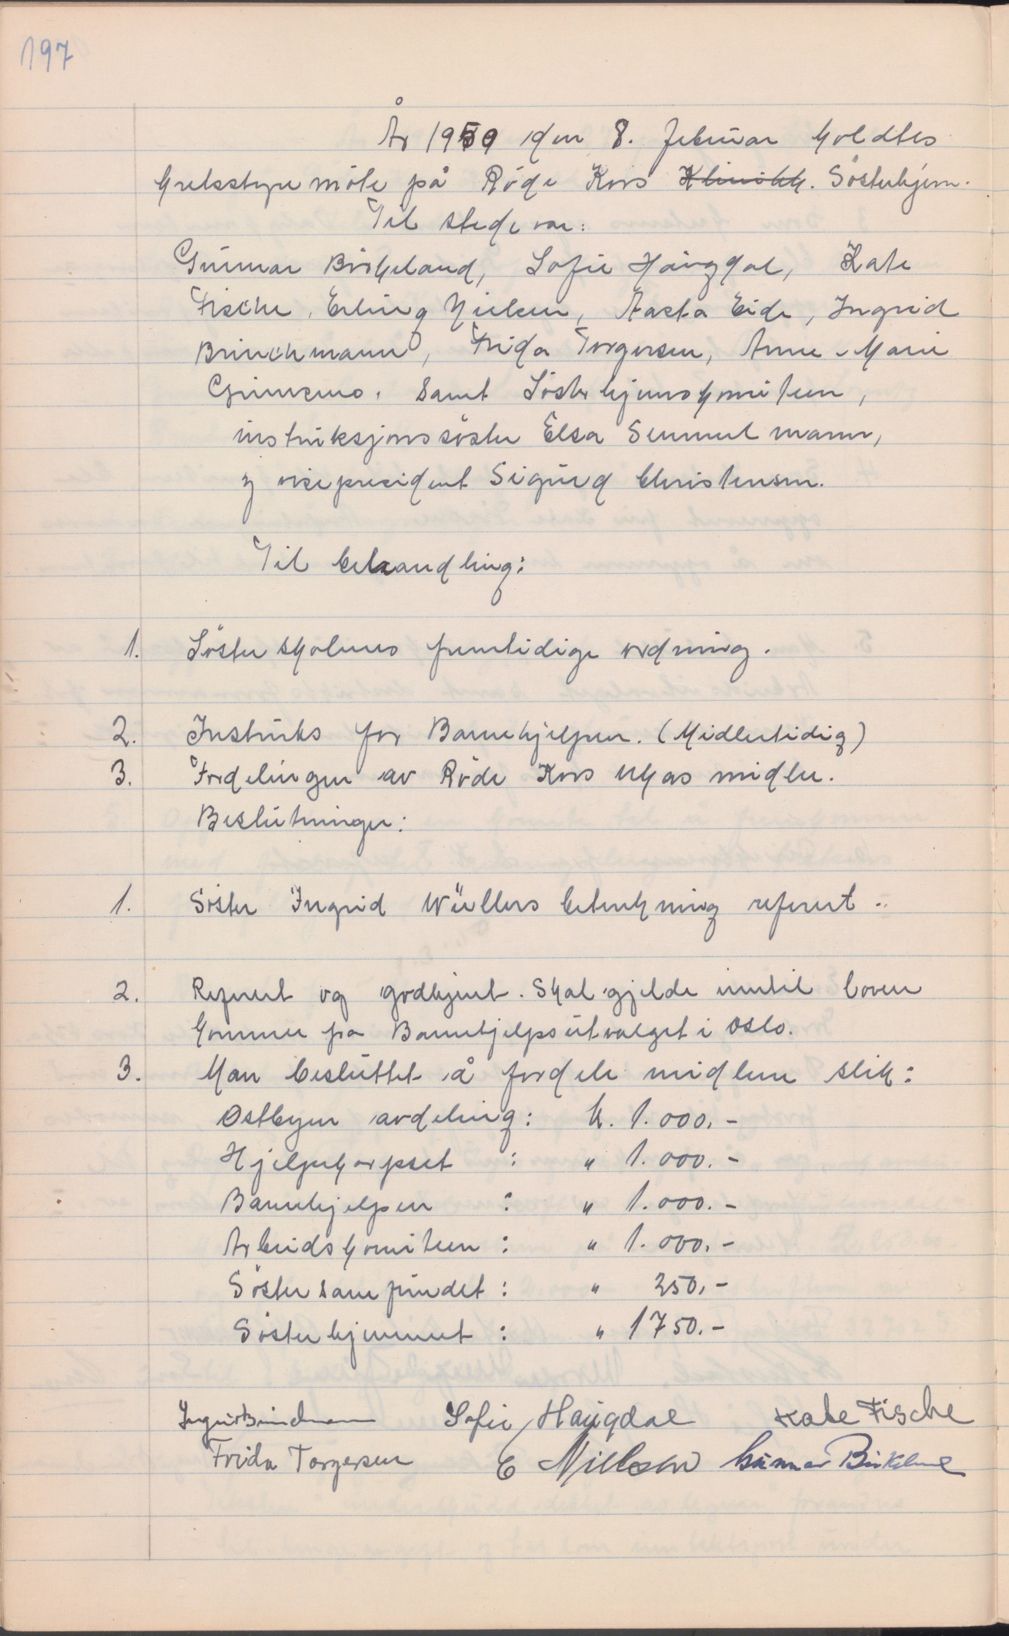 197
År 1950 den 8. februar holdtes
kretsstyremöte på Röde Kors Klinikk. Sösterhjem.
Til stede var:
Gunnar Birkeland, Sofie Haugdal, Kate
Fische, Erling Nielsen, Aasta Eide, Ingrid
Brinchmann, Frida Torgersen, Anne-Marie
samt Sösterhjemskomiteen,
instruksjonssöster Elsa Semmelmann,
og visepresident Sigurd Christensen.
Til behandling:
1. Söster skolenes fremtidige ordning.
2. Instruks for Barnehjelpen. (Midlertidig)
3. Fordelingen av Röde Kors ukas midler.
Beslutninger:
1. Söster Ingrid Wüllers betenkning referert.
2. Referert og godkjent. Skal gjelde inntil loven
kommer fra Barnehjelpsutvalget i Oslo.
3. Man besluttet å fordele midlene slik:
Östbyen avdeling: kr. 1.000.-
Hjelpekorpset : " 1.000.-
Barnehjelpen : " 1.000.-
Arbeidskomiteen : " 1.000.-
Söstersamfundet : " 250.-
Sösterhjemmet : " 1750.-
Ingrid Brinchmann Sofie Haugdal Kate Fische
Frida Torgersen E Nielsen Gunnar Birkeland